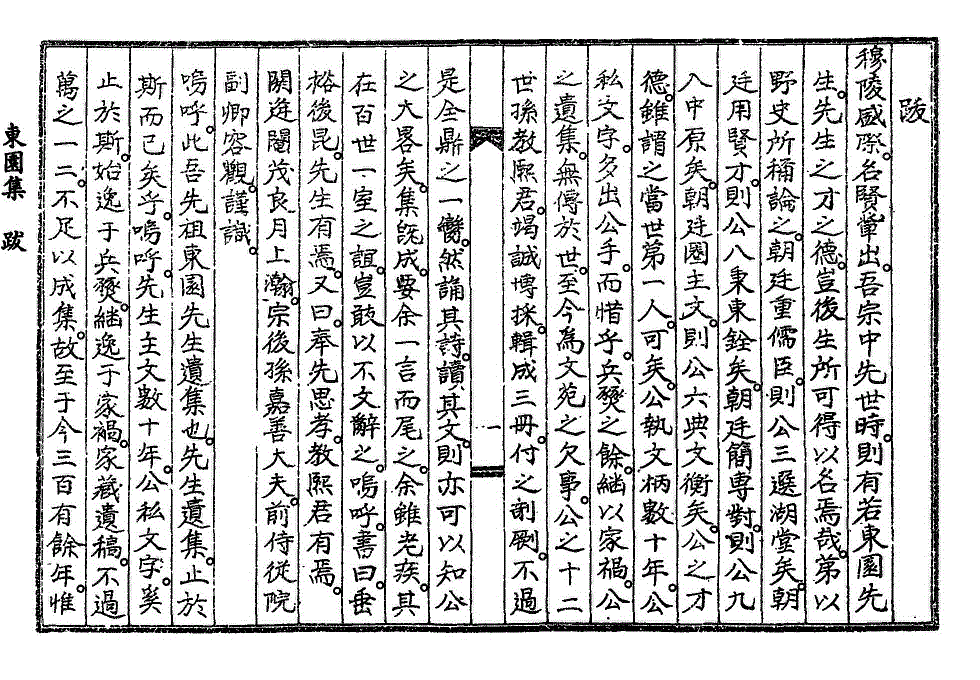 跋
穆陵盛際。名賢輩出。吾宗中先世時。則有若東園先
生。先生之才之德。豈後生所可得以名焉哉。第以
野史所稱論之。朝廷重儒臣。則公三選湖堂矣。朝
廷用賢才。則公八秉東銓矣。朝廷簡專對。則公九
入中原矣。朝廷圈主文。則公六典文衡矣。公之才
德。雖謂之當世第一人。可矣。公執文柄數十年。公
私文字。多出公手。而惜乎。兵燹之餘。繼以家禍。公
之遺集。無傳於世。至今爲文苑之欠事。公之十二
世孫教熙君。竭誠博採。輯成三冊。付之剞劂。不過
是全鼎之一臠。然誦其詩。讀其文。則亦可以知公
之大畧矣。集旣成。要余一言而尾之。余雖老疾。其
在百世一室之誼。豈敢以不文辭之。嗚呼。書曰。垂
裕後昆。先生有焉。又曰奉先思孝。教熙君有焉。
閼逢閹茂良月上瀚。宗後孫嘉善大夫。前侍從院
副卿容觀謹識。
嗚呼。此吾先祖東園先生遺集也。先生遺集。止於
斯而已矣乎。嗚呼。先生主文數十年。公私文字。奚
止於斯。始逸于兵燹。繼逸于家禍。家藏遺稿。不過
萬之一二。不足以成集。故至于今三百有餘年。惟
東園集 跋
一